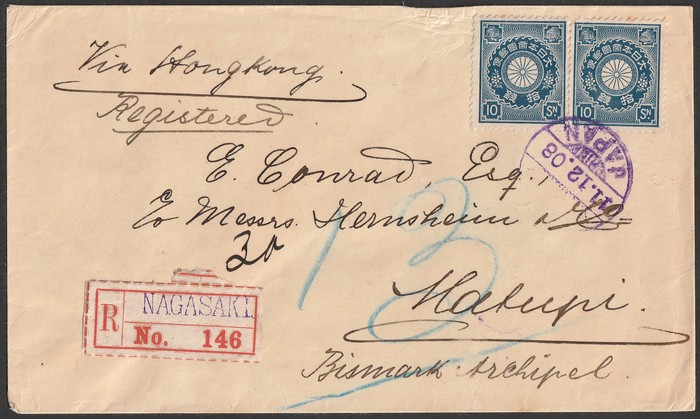 Via Hongkong.
Registered.
大日本帝國郵便
拾錢
10 Sn.
大日本帝國郵便
拾錢
10 Sn.
11.12.08
JAPAN
E. Conrad, Esq.,
c/o Messrs. Hernsheim & Co
30
13
Matupi.
Bismark-Archipel.
R
NAGASAKI.
No. 146